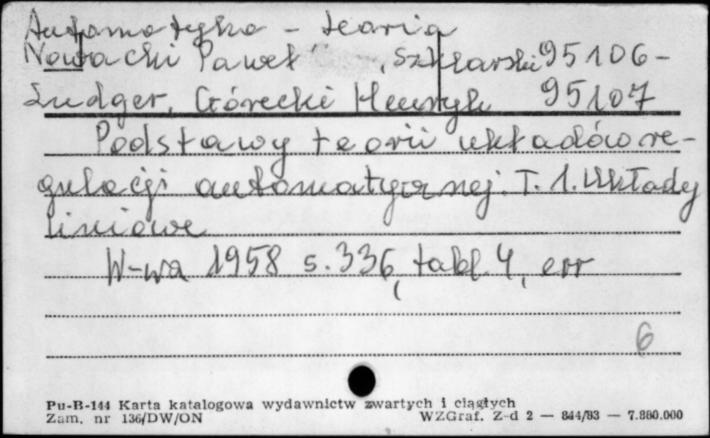 Automatyka - teoria
Nowacki Paweł, Szklarski 95106-
Ludger, Górecki Henryk 95107
Podstawy teorii układów re-
gulacji automatycznej. T. 1. Układy
liniowe
W-wa 1958 s. 336, tabl. 4, err
6
Pu-B-144 Karta katalogowa wydawnictw zwartych i ciągłych
Zam. nr 136/DW/ON WZGraf. Z-d 2 — 844/93 — 7.880.000